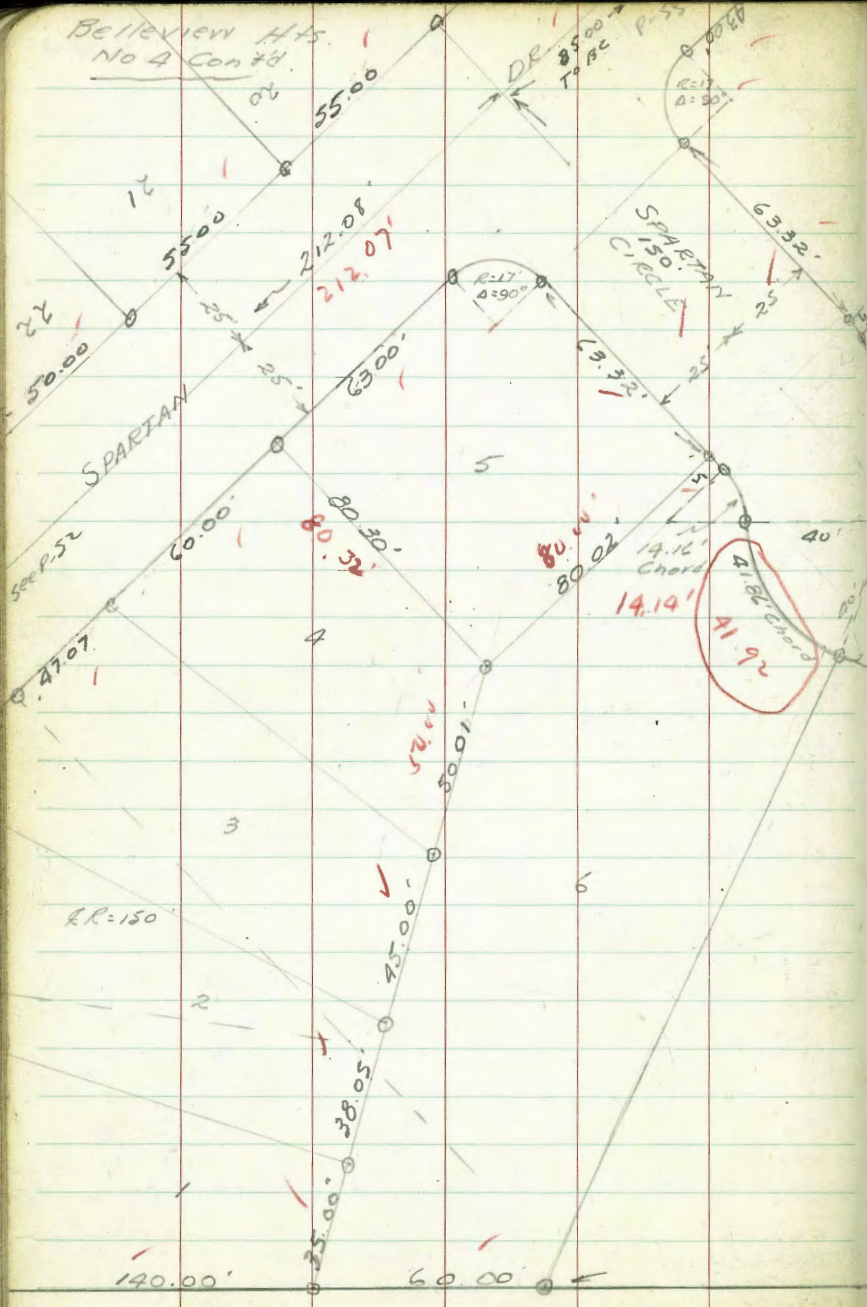 Belleview Hts.
No 4 Cont'd.
20
55.00
DR.
85.00
To BC
P-55
43.00'
R=17'
Δ=90°
21
55.00
212.08'
212.07'
SPARTAN
150'
CIRCLE
63.32'
22
50.00
25'
25'
R=17'
Δ=90°
63.00'
63.32'
25'
25'
SPARTAN
5
see P-52
60.00'
80.30'
80.32'
80.00'
80.02'
5'
14.16'
Chord
14.14'
40'
41.86' Chord
41.92
47.07
4
50.00
50.01'
3
6
℄R=150'
45.00'
2
38.05'
1
35.00'
140.00'
60.00'